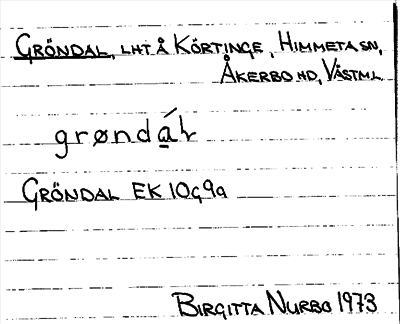 GRÖNDAL, LHT Å KÖRTINGE, HIMMETA SN,
ÅKERBO HD, VÄSTML
grøndáɫ
GRÖNDAL EK 10G9a
BIRGITTA NURBO 1973